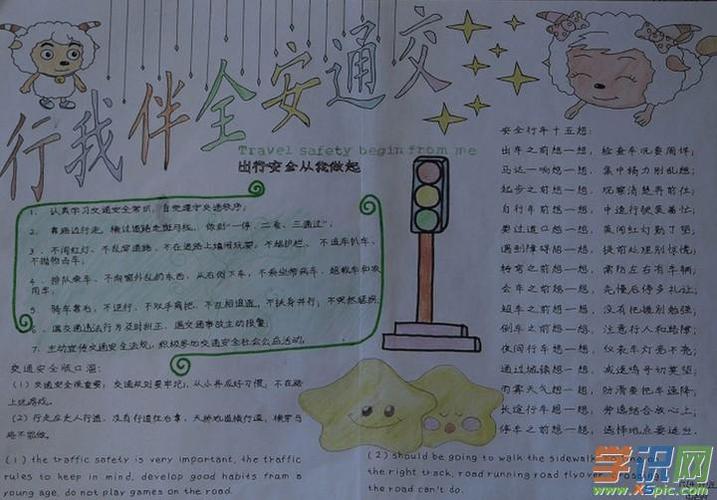 行我伴全安通交
Travel safety begin from me
出行安全从我做起
1、认真学习交通安全常识，自觉遵守交通秩序；
2、靠路边行走，横过道路走斑马线，做到一停、二看、三通过"；
3、不闯红灯，不乱穿道路，不在道路上嬉闹玩耍，不越护栏，不追车扒车、
不抛物击车。
4、排队乘车，不向窗外乱扔东西，从右侧下车，不乘坐带病车、超载车和农
用车。
5、骑车靠右，不逆行、不双手离把、不互相追逐、不扶身并行；不突然猛拐
6、遇交通违法行为及时纠正，遇交通事故主动报警；
7、主动宣传交通安全法规，积极参加交通安全社会公益活动。
交通安全版口溜：
(1)交通安全很重要，交通规则要牢记，从小养成好习惯，不在路
上玩游戏。
(2)行走应走人行道，没有行道往右靠，天桥地道横行道，横穿马
路不能做。
(1) the traffic safety is very important, the traffic
rules to keep in mind, develop good habits from a
young age, do not play games on the road.
(2) should be going to walk the sidewalk, no
the right track, road running road flyover, crossing
the road can't do.
安全行车十五想：
出车之前想一想，检查车况要周详；
马达一响想一想，集中精力别乱想；
起步之前想一想，观察清楚再前往；
自行车前想一想，中速行驶莫着忙；
要过道口想一想，莫闯红灯勤了望；
遇到障碍想一想，提前处理别惊慌；
转弯之前想一想，需防左右有车辆；
会车之前想一想，先慢后停多礼让；
超车之前想一想，没有把握别勉强；
倒车之前想一想，注意行人和路障；
夜间行车想一想，仪表车灯亮不亮；
通过城镇想一想，减速鸣号切莫望；
雨雾天气想一想，防滑要把车速降；
长途行车想一想，劳逸结合放心上；
停车之前想一想，选择地点要适当。
学识网
www.xspic.com